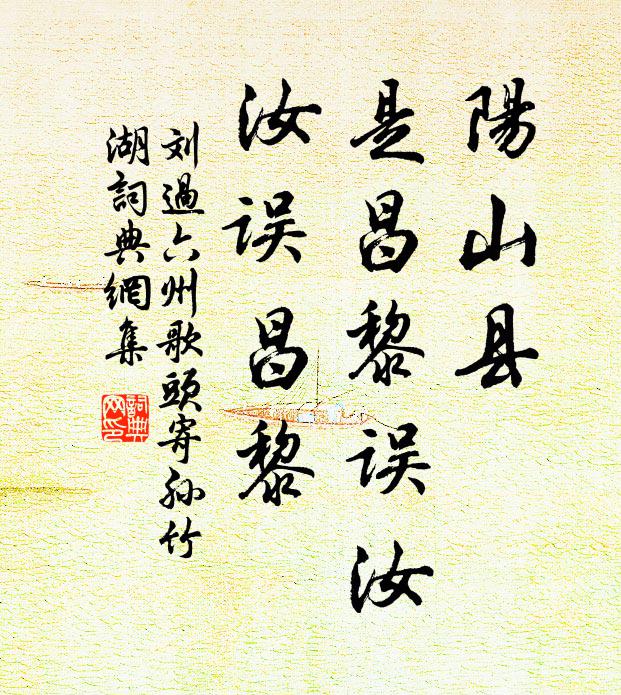 陽山县
是昌黎误汝
汝误昌黎
刘過六州歌頭寄孙竹
湖詞典網集
詞典
网印